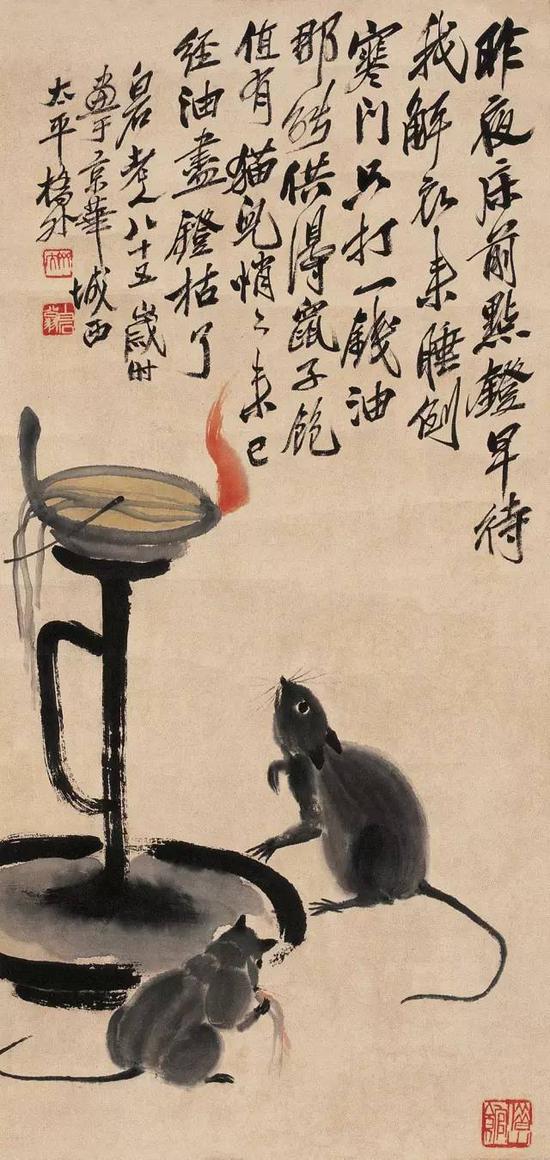 昨夜床前點鐙早待
我解衣来睡倒
寒门只打一錢油
那能供得鼠子飽
值有猫兒悄〻来已
经油盡鐙枯了
白石老人八十五歲时
畫于京華城西
太平橋外